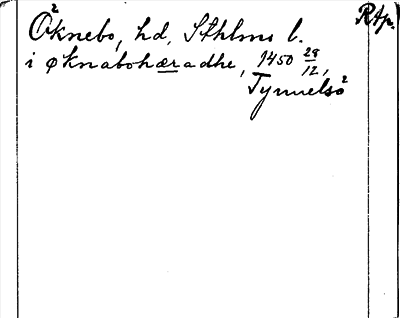 Öknebo, hd, Sthlms l. RAp.
i øknabohæradhe, 1450 28/12,
Tynnelsö